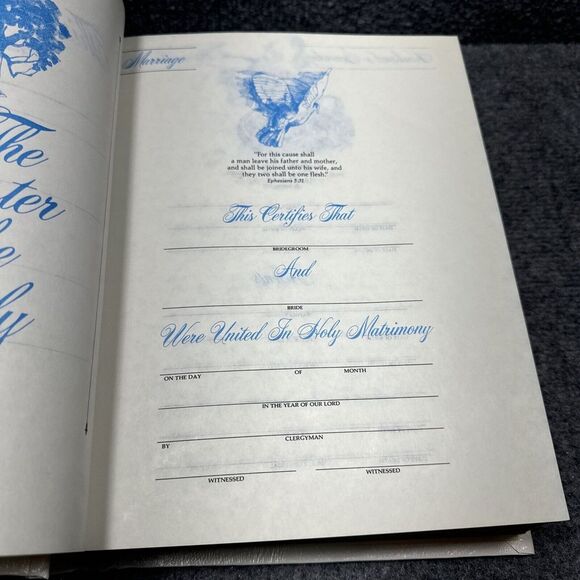 The
Marriage
"For this cause shall
a man leave his father and mother,
and shall be joined unto his wife, and
they two shall be one flesh."
Ephesians 5:31
This Certifies That
BRIDEGROOM
And
BRIDE
Were United In Holy Matrimony
ON THE DAY OF MONTH
IN THE YEAR OF OUR LORD
BY CLERGYMAN
WITNESSED WITNESSED